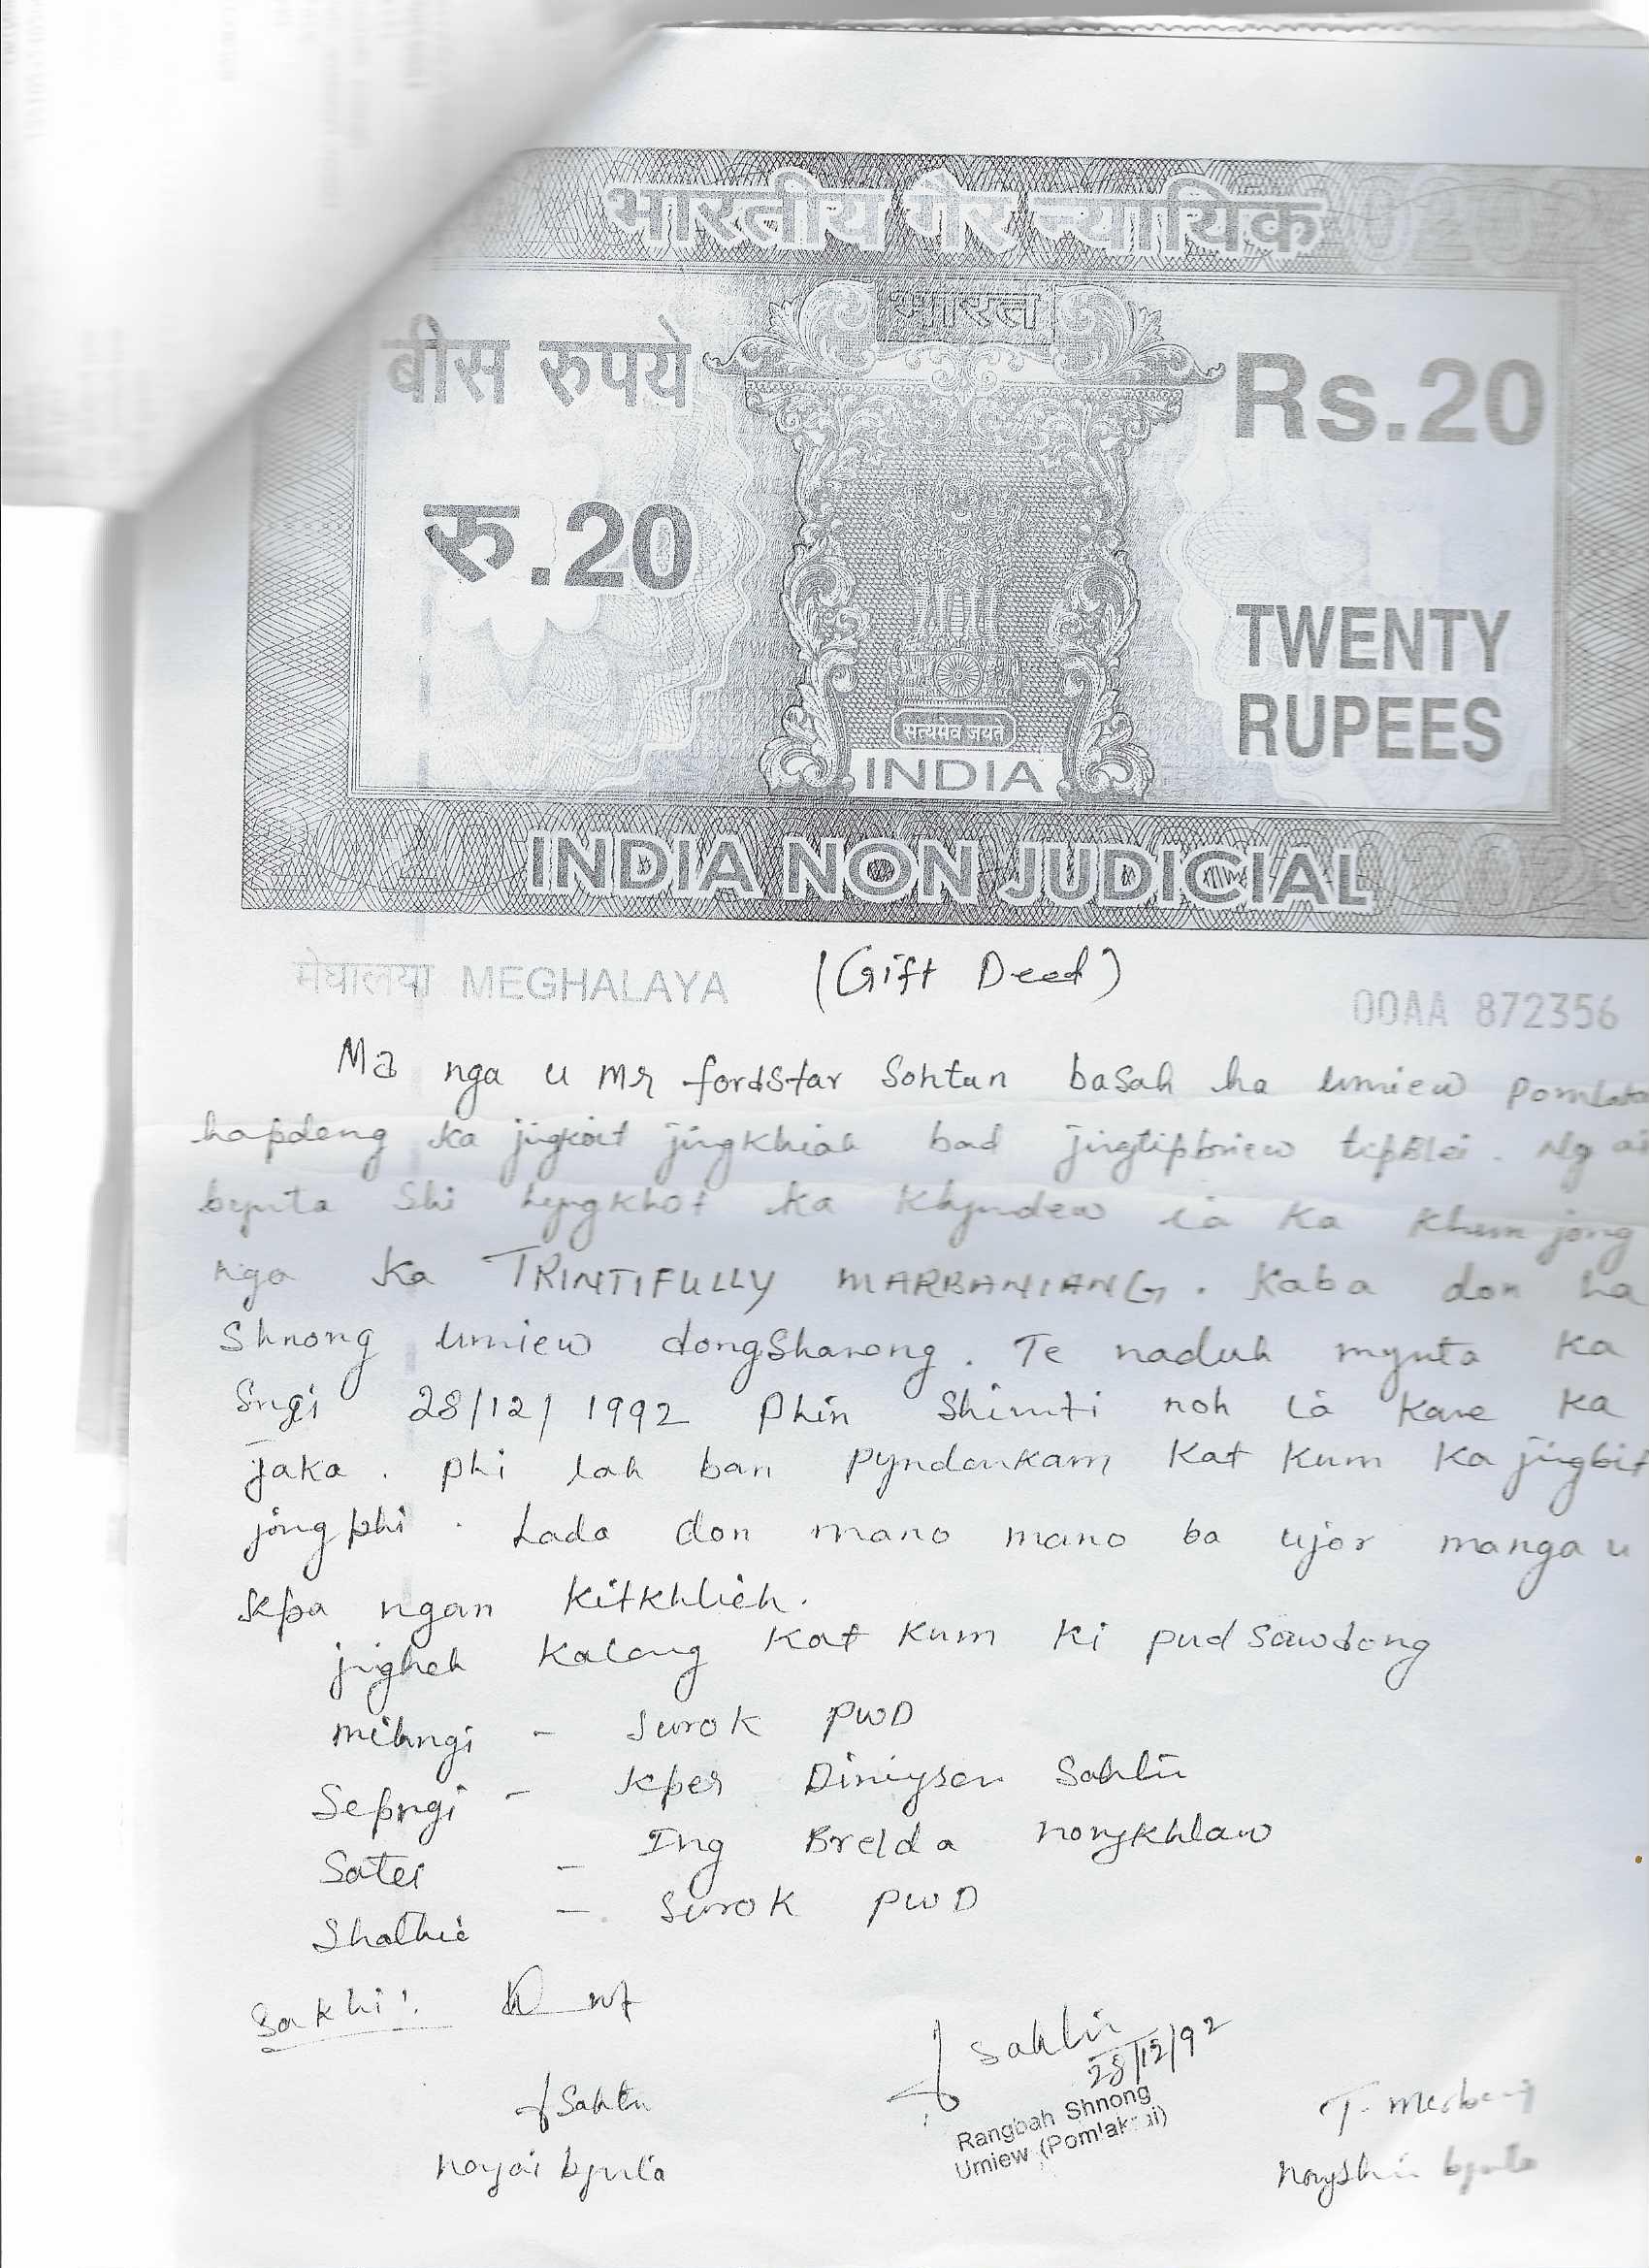 भारतीय गैर न्यायिक
भारत
बीस रुपये
Rs.20
रु.20
TWENTY
RUPEES
सत्यमेव जयते
INDIA
INDIA NON JUDICIAL
मेघालया MEGHALAYA
(Gift Deed)
00AA 872356
Ma nga u Mr fordStar Sohtun basah ha umiew
hapdeng ka jigkoit jingkhiah bad jingtipbriew tipBlei. Ng ai
bynta Shi lyngkhot ka Khyndew ia Ka Khun jong
nga Ka TRINTIFULLY MARBANIANG. Kaba don ha
Shnong umiew dongSharong. Te naduh mynta Ka
Sngi 28/12/1992 Phin Shimti noh ia Kane Ka
jaka. phi lah ban pyndonkam Kat Kum Ka jigbit
jong phi. Lada don mano mano ba ujor manga u
Kpa ngan Kitkhlieh.
jigheh Kalong Kat Kum Ki pud Sawdong
mihngi - Surok PWD
Sepngi - Kper Sohtun
Satei - Ing Brelda nongkhlaw
Shathie - Surok PWD
Sakhi:
28/12/92
Rangbah Shnong
Umiew (Pomlakrai)
Sohtun
nongai bynta